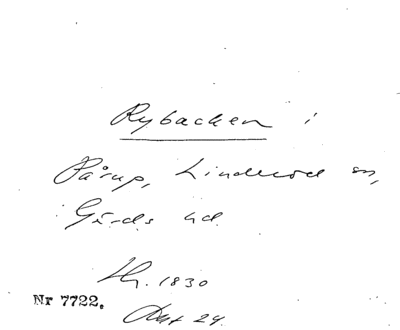 Rybacken i
Pårup, Linderöd sn,
Gärds hd
Hr. 1830
Nr 7722.
Akt 24.